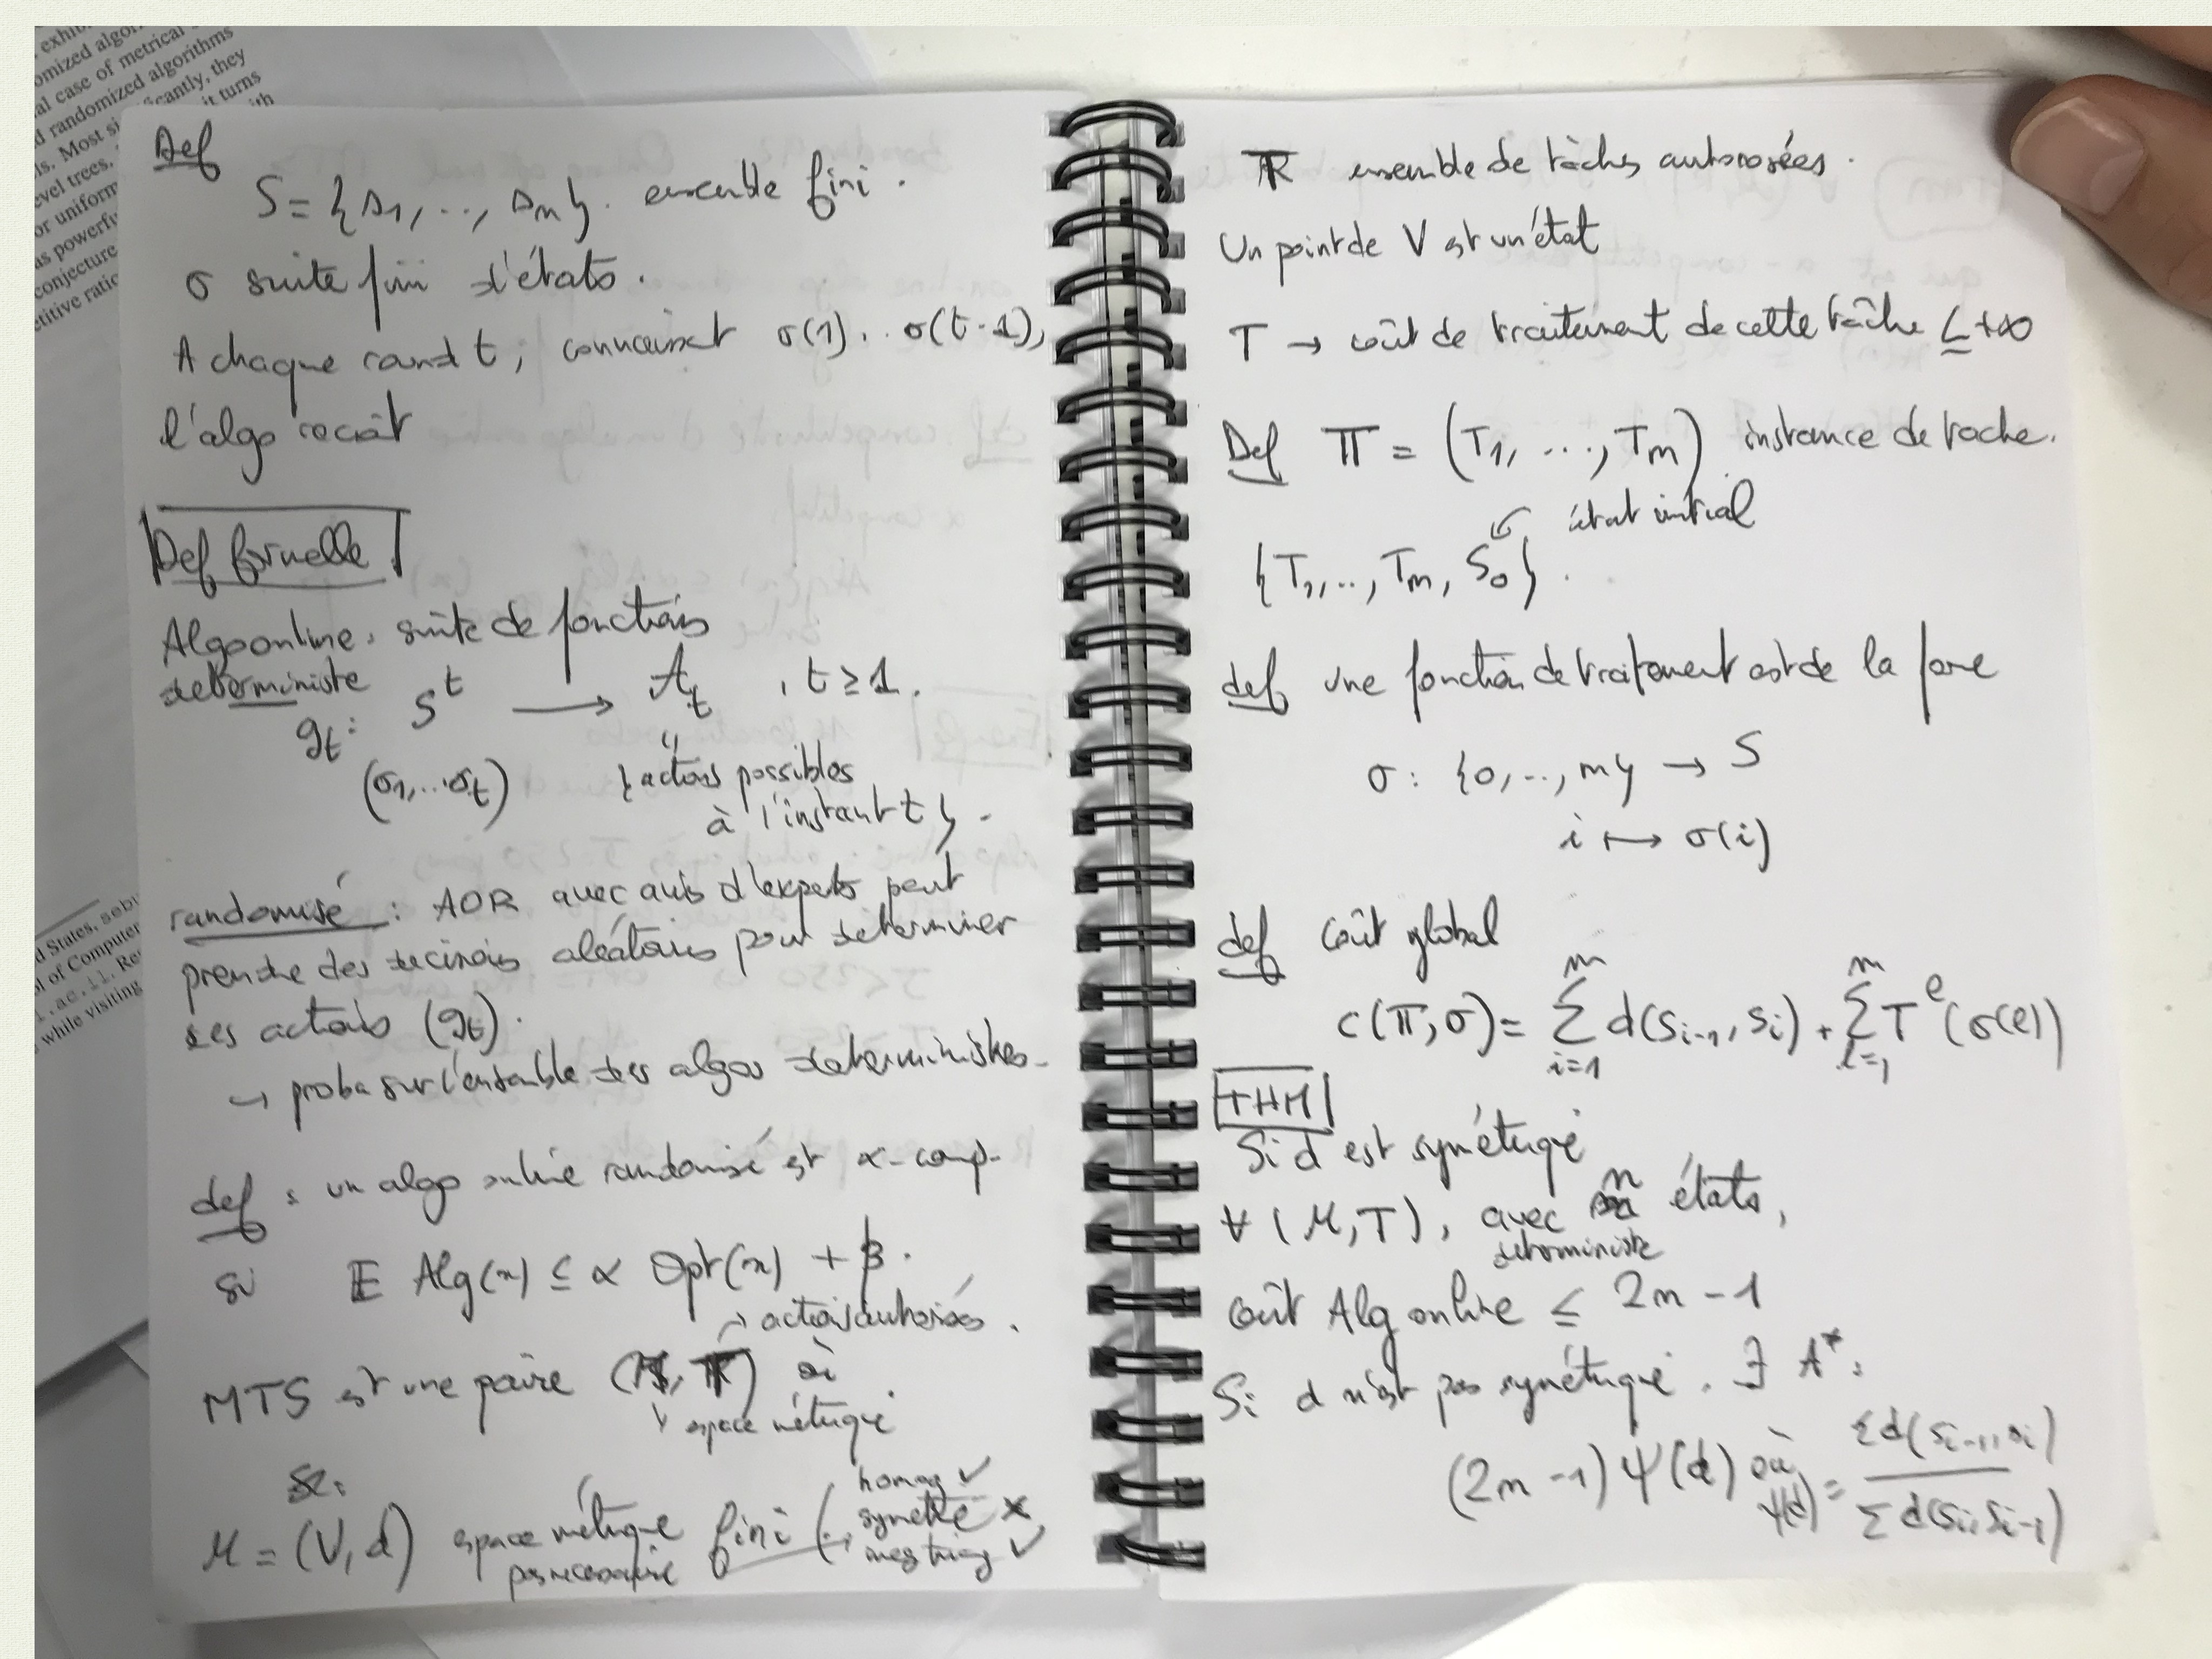 exhib
omized algor
al case of metrical
d randomized algorithms
ls. Most si icantly, they
evel trees. it turns
or uniform ith
as powerfu
conjecture
etitive ratio
d States, sebu
ol of Computer
l.ac.il. Re
while visiting
Def
S = {s1, .., sn}. ensemble fini.
σ suite fini d'états.
A chaque rand t, connaissant σ(1). . σ(t-1),
l'algo reçoit
Def formelle
Algo online. suite de fonctions
deterministe
g_t: S^t → A_t , t ≥ 1.
(σ1,...σt) " {actions possibles
à l'instant t}.
randomisé : AOR avec avis d'experts peut
prendre des decisions aléatoires pour determiner
ses actions (g_t).
→ proba sur l'ensemble des algos deterministes.
def : un algo online randomisé est α-comp-
si E Alg(x) ≤ α Opt(x) + β.
→ actions autorisées.
MTS est une paire ( , T) où
↘ espace métrique
M = (V, d) espace métrique fini (
pas necessaire
homog ✓
symetrie ×
ineg triang ✓
T ensemble de tâches autorisées.
Un point de V est un état
T → coût de traitement de cette tâche ≤ +∞
Def Π = (T1, ..., Tm) instance de tache.
↙ état initial
{T1, .., Tm, S0}.
def une fonction de traitement est de la forme
σ : {0, .., m} → S
i ↦ σ(i)
def Coût global
c(Π, σ) = Σ_{i=1}^{m} d(s_{i-1}, s_i) + Σ_{l=1}^{m} T^l(σ(l))
THM
Si d est symétrique
∀ (M, T), avec n états,
deterministe
coût Alg online ≤ 2n - 1
Si d n'est pas symétrique. ∃ A* :
(2n - 1) ψ(d) où ψ(d) = Σ d(s_{i-1}, s_i) / Σ d(s_i, s_{i-1})